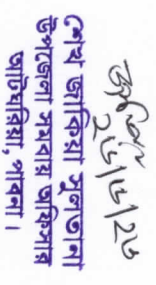 শেখ জাকিয়া সুলতানা
উপজেলা সমবায় অফিসার
আটঘরিয়া, পাবনা।